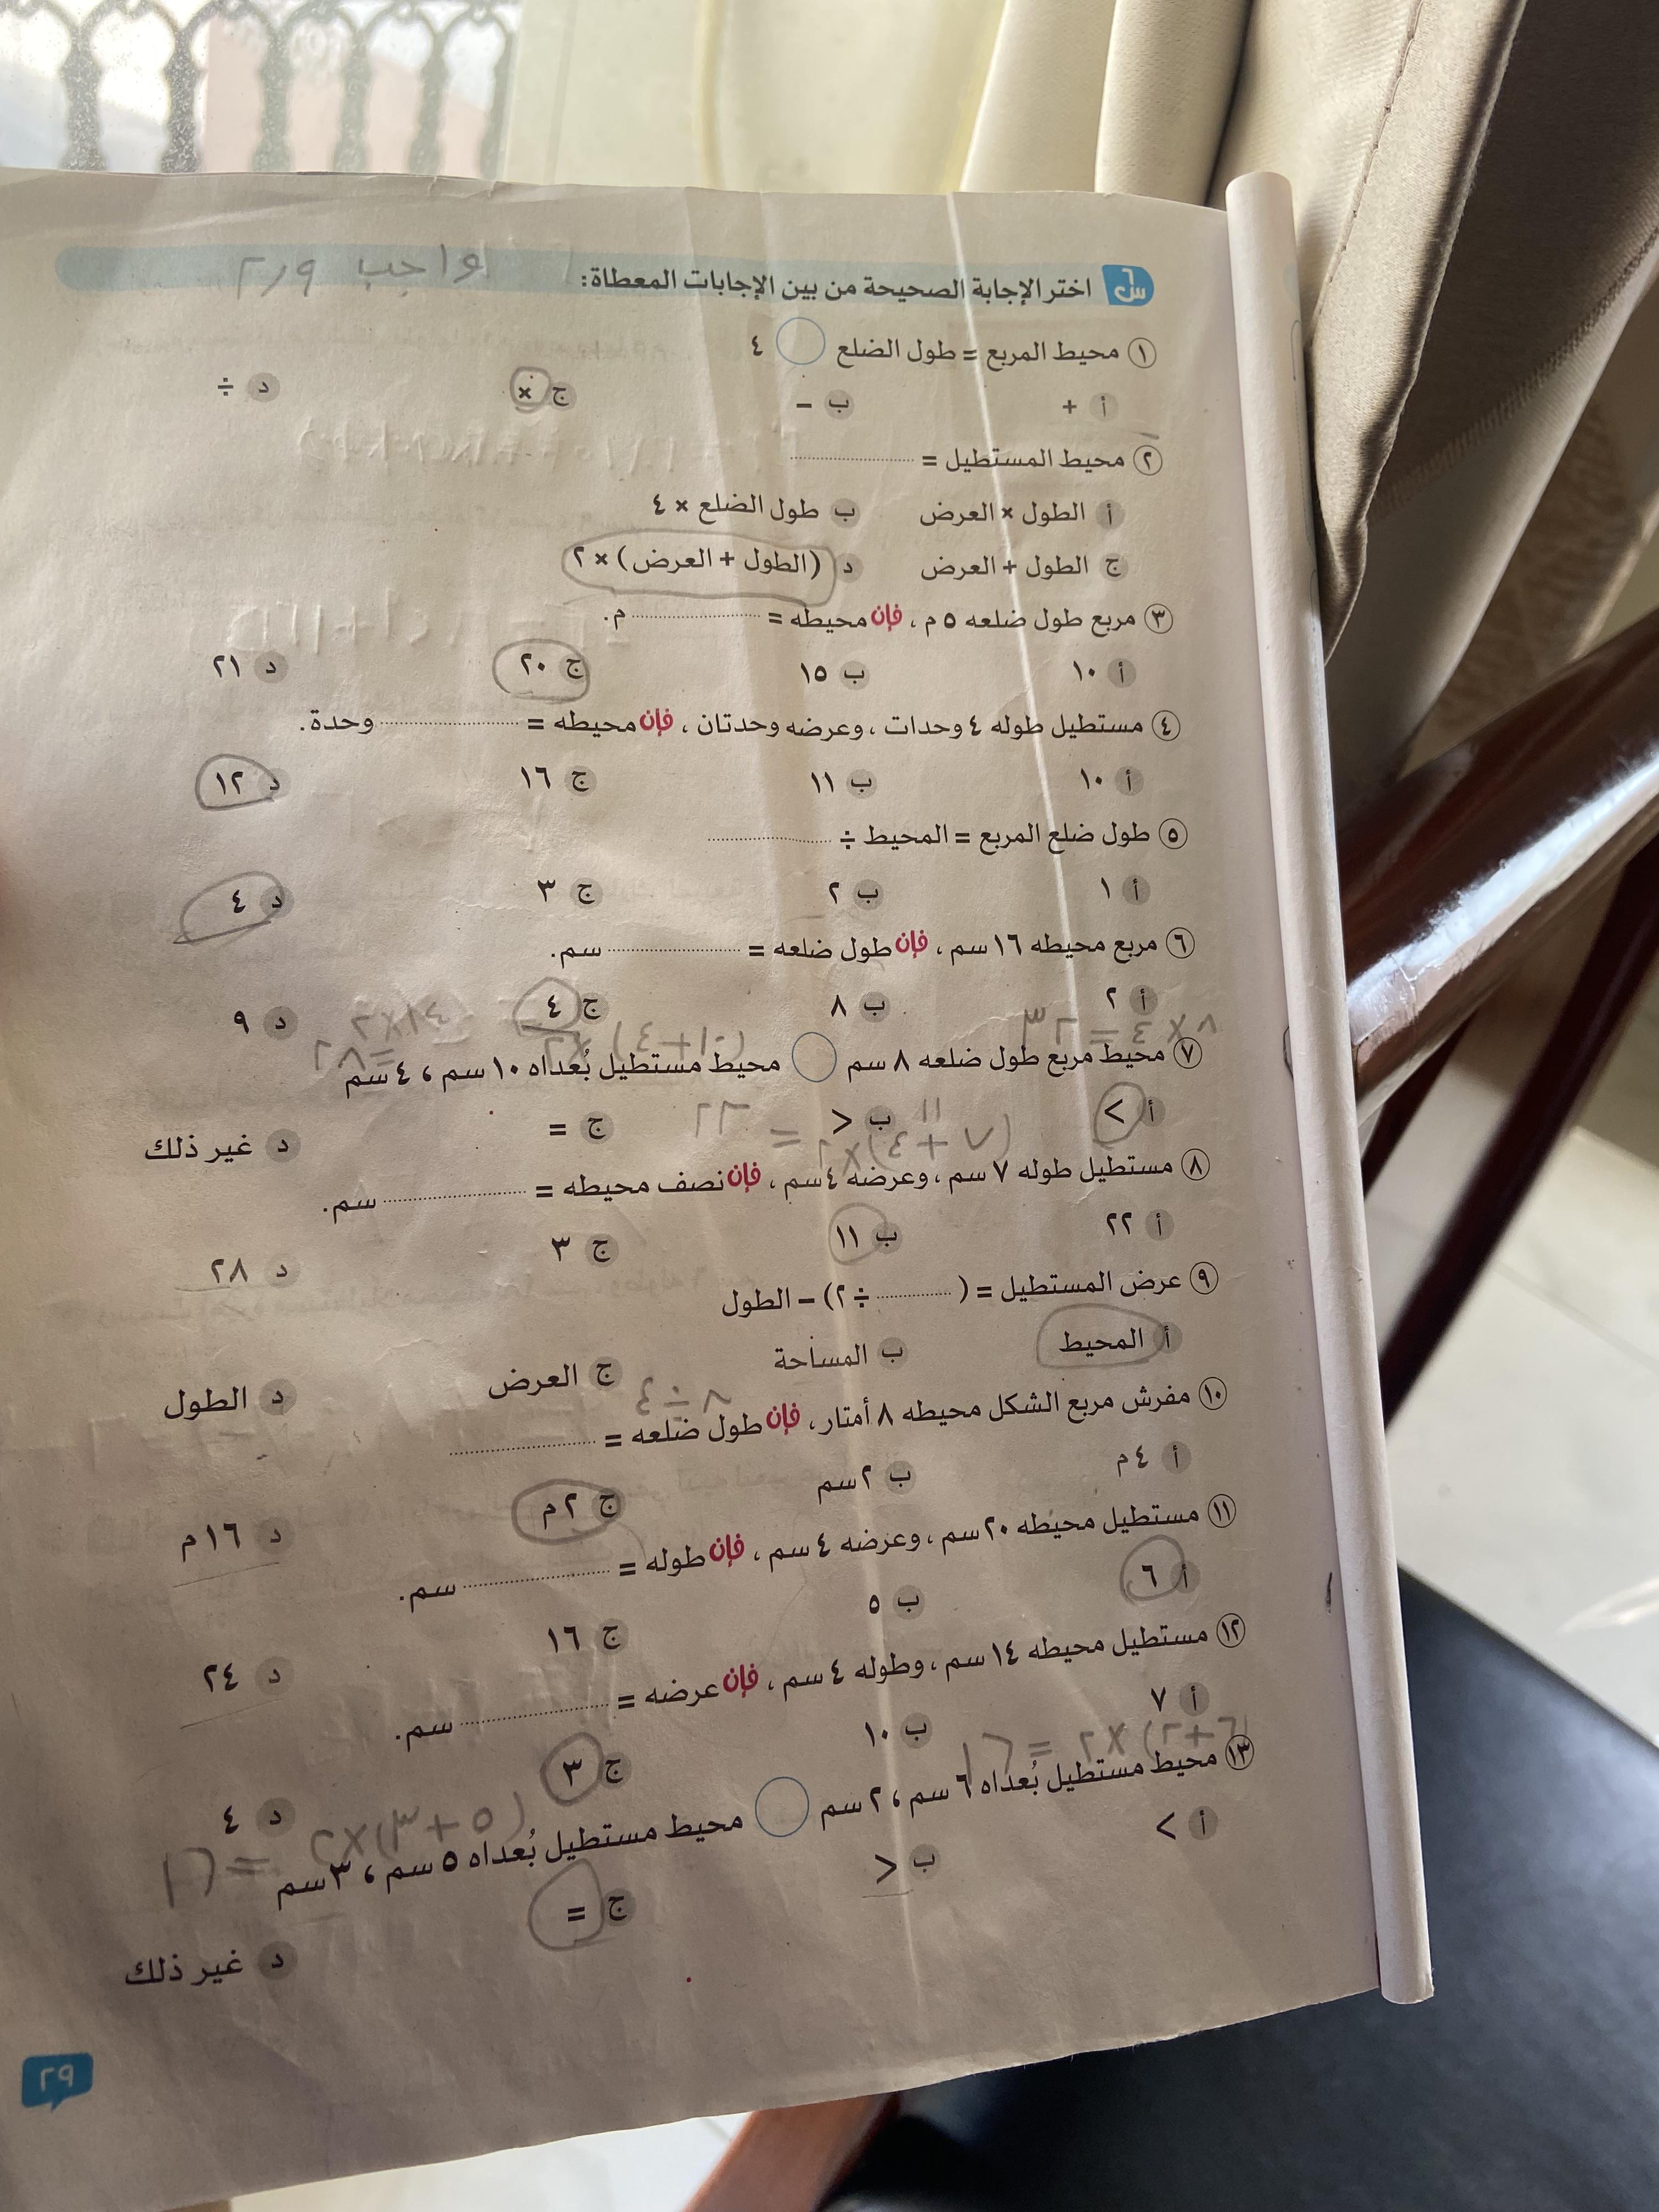 س٦ اختر الإجابة الصحيحة من بين الإجابات المعطاة: واجب ٢٫٩
١ محيط المربع = طول الضلع ◯ ٤
أ + ب − ج × د ÷
٢ محيط المستطيل = ..................
أ الطول × العرض ب طول الضلع × ٤
ج الطول + العرض د (الطول + العرض) × ٢
٣ مربع طول ضلعه ٥ م ، فإن محيطه = .................. م.
أ ١٠ ب ١٥ ج ٢٠ د ٢١
٤ مستطيل طوله ٤ وحدات ، وعرضه وحدتان ، فإن محيطه = .................. وحدة.
أ ١٠ ب ١١ ج ١٦ د ١٢
٥ طول ضلع المربع = المحيط ÷ ..................
أ ١ ب ٢ ج ٣ د ٤
٦ مربع محيطه ١٦ سم ، فإن طول ضلعه = .................. سم.
أ ٢ ب ٨ ج ٤ د ٩
٨ × ٤ = ٣٢ (١٠+٤) ×٢ ١٤×٢ =٢٨
٧ محيط مربع طول ضلعه ٨ سم ◯ محيط مستطيل بُعداه ١٠ سم ، ٤ سم
أ > ب < ج = د غير ذلك
(٧+٤)×٢ = ٢٢
١١
٨ مستطيل طوله ٧ سم ، وعرضه ٤ سم ، فإن نصف محيطه = .................. سم.
أ ٢٢ ب ١١ ج ٣ د ٢٨
٩ عرض المستطيل = ( .................. ÷ ٢) − الطول
أ المحيط ب المساحة ج العرض د الطول
٨ ÷ ٤
١٠ مفرش مربع الشكل محيطه ٨ أمتار ، فإن طول ضلعه = ..................
أ ٤ م ب ٢ سم ج ٢ م د ١٦ م
١١ مستطيل محيطه ٢٠ سم ، وعرضه ٤ سم ، فإن طوله = .................. سم.
أ ٦ ب ٥ ج ١٦ د ٢٤
١٢ مستطيل محيطه ١٤ سم ، وطوله ٤ سم ، فإن عرضه = .................. سم.
أ ٧ ب ١٠ ج ٣ د ٤
(٦+٢) ×٢ = ١٦
١٣ محيط مستطيل بُعداه ٦ سم ، ٢ سم ◯ محيط مستطيل بُعداه ٥ سم ، ٣ سم
(٥+٣)×٢ = ١٦
أ > ب < ج = د غير ذلك
٢٩